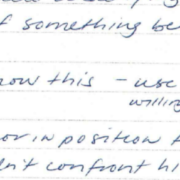 f something be
now this - use
willing
or in position t
n't confront hi